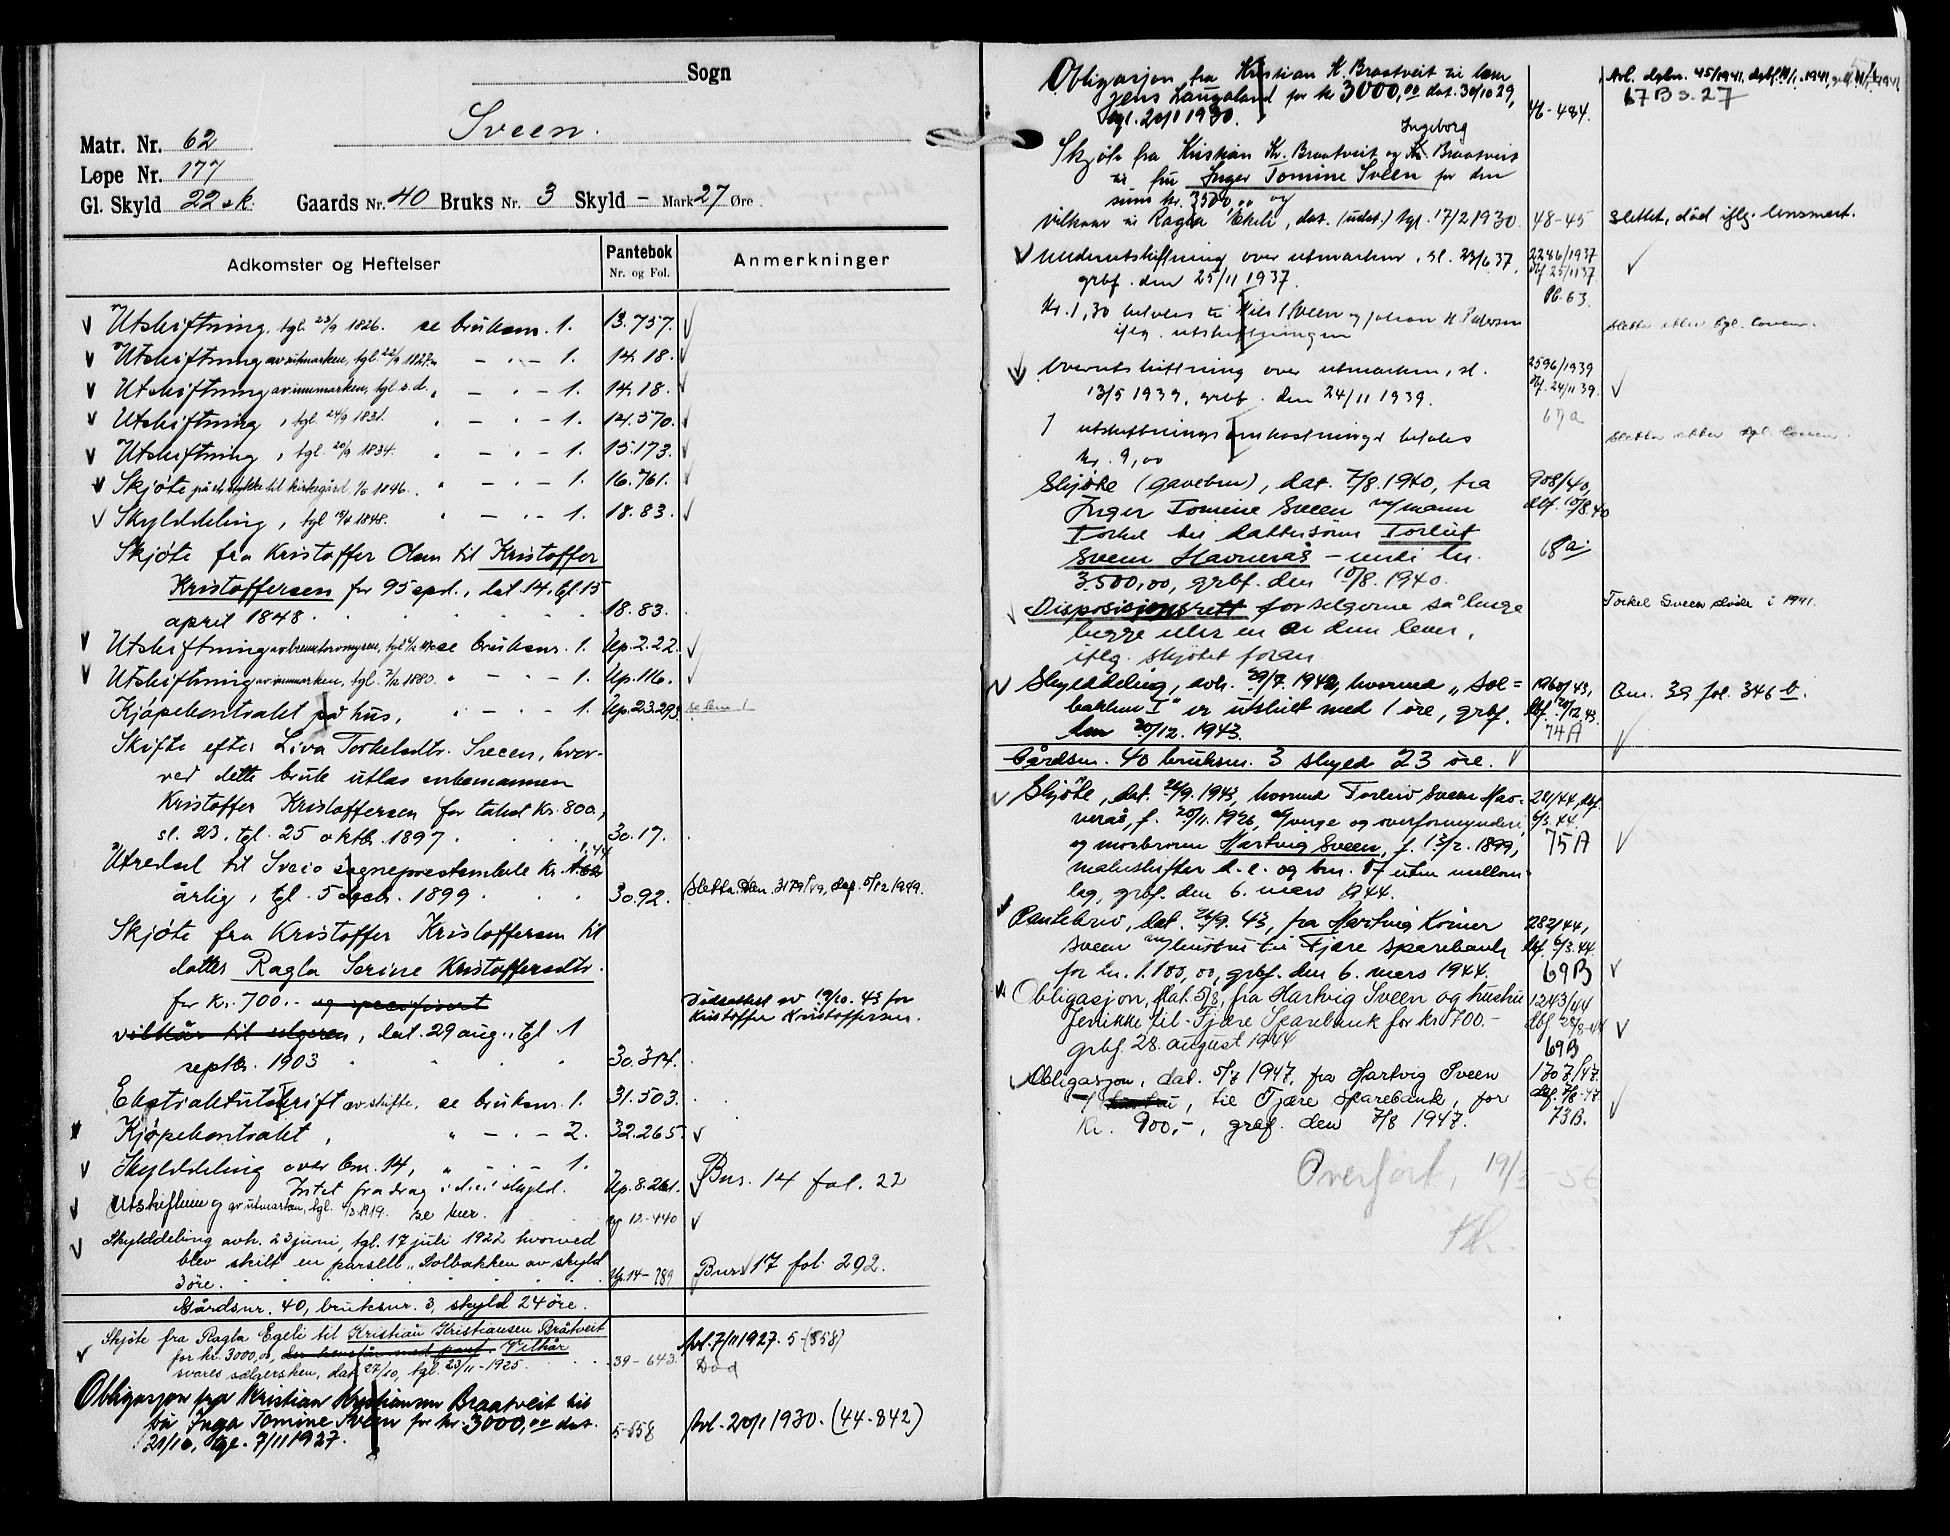 Sogn
Sveen.
Matr. Nr. 62
Løpe Nr. 177
Gl. Skyld 22 sk. Gaards Nr. 40 Bruks Nr. 3 Skyld – Mark 27 Øre.
Adkomster og Heftelser Pantebok Nr. og Fol. Anmerkninger
Utskiftning, tgl. 23/9 1826. se bruksnr. 1. 13.757.
Utskiftning av utmarken, tgl. - " - 1. 14.18.
Utskiftning av innmarken, tgl. s.d. " - " - 1. 14.18.
Utskiftning, tgl. 24/9 1831. " - " - 1. 14.570.
Utskiftning, tgl. 20/9 1834. " - " - 1. 15.173.
Skjøte på et stykke til kirkegård 1846. " - " - 1. 16.761.
Skylddeling, tgl 1848. " - " - 1. 18.83.
Skjøte fra Kristoffer Olsen til Kristoffer
Kristoffersen for 95 spd., dat. 14, tgl. 15
april 1848. 18.83.
Utskiftning av brenntorvmyren, tgl. se bruksnr. 1. Up. 2.22.
Utskiftning av innmarken, tgl. 1880. " - " - 1. Up. 116.
Kjøpekontrakt på hus, " - " - 1. Up. 23.293 se bnr. 1
Skifte efter Liva Torkelsdtr. Sveen, hvor-
ved dette bruk utlas enkemannen
Kristoffer Kristoffersen for takst kr. 800,
sl. 23. tgl. 25 oktbr. 1897. 30.17.
Utredsel til Sveio sogneprestembede kr. 1,44
årlig, tgl. 5 decb. 1899. 30.92. Slettet Dbn. 3179/49, dbf. 5/12 1949.
Skjøte fra Kristoffer Kristoffersen til
datter Ragla Serine Kristoffersdtr.
for kr. 700.- og specifisert
vilkår til selgeren, dat. 29 aug., tgl. 1
septbr. 1903 30.314.
Dødsattest av 19/10. 43 for
Kristoffer Kristoffersen.
Ekstraktutskrift av skifte, se bruksnr. 1. 31.503.
Kjøpekontrakt, " - " - 2. 32.265.
Skylddeling over bnr. 14, " - " - 1.
Intet fradrag i d.e.' skyld. Up. 8.261. Bnr. 14 fol. 22
Utskiftning av utmarken, tgl. 1919. se bnr. up 12-440
Skylddeling avh. 23 juni, tgl. 17 juli 1922 hvorved
blev skilt en parsell "Solbakken av skyld
3 øre. Up. 14-789 Bnr. 17 fol. 292.
Gårdsnr. 40, bruksnr. 3, skyld 24 øre.
Skjøte fra Ragla Egeli til Kristian Kristiansen Bråtveit
for kr. 3000,00, Vilkår
svares sælgersken, dat. 27/10, tgl. 23/11-1925. 39-643. Avl. 7/11 1927. 5-(858)
Død
Obligasjon fra Kristian Kristiansen Braatveit til
fru Inga Tomine Sveen for kr. 3000,00 dat.
21/10, tgl. 7/11 1927. 5-858 Avl. 20/1 1930. (44-842)
Obligasjon fra Kristian K. Braatveit til
Jens Laugaland for kr 3000,00 dat. 30/10 29,
tgl. 20/1 1930. 46-484.
Avl. dgbnr. 45/1941,
67 B s. 27
Ingeborg
Skjøte fra Kristian Kr. Braatveit og Kr. Braatveit
til fru Inger Tomine Sveen for den
sum kr. 3500,00 og
vilkaar til Ragla Ekeli, dat. (udat.) tgl. 17/2 1930. 48-45 Slettet, død iflg. lensmest.
Underutskiftning over utmarken, sl. 23/6 37, 2286/1937
grbf. den 25/11 1937. dbf. 25/11 37
Pb. 63.
Kr. 1,30 betales til Nils I Sveen og Johan H. Pedersen
iflg. utskiftningen Slettes etter tgl. loven.
Overutskiftning over utmarken, sl. 2596/1939
13/5 1939, grbf. den 24/11 1939. dbf. 24/11 39.
67a
I utskiftningsomkostninger betales
kr. 9,00 Slettes etter tgl. loven.
Skjøte (gavebrev), dat. 7/8. 1940, fra 908/40,
Inger Tomine Sveen m/mann dbf. 10/8.40
Torkel til dattersønn Torleif
Sveen Havnerås – verdi kr. 68a.
3.500,00, grbf. den 10/8. 1940.
Disposisjonsrett for selgerne så lenge Torkel Sveen døde i 1941.
begge eller en av dem lever,
iflg. skjøtet foran.
Skylddeling, avh. 29/7. 1942, hvorved "Sol= 1960/43, Bnr. 39 fol. 346 b.
bakken I" er utskilt med 1 øre, grbf. dbf. 20/12 43.
den 20/12. 1943. 74 A
Gårdsnr. 40 bruksnr. 3 skyld 23 øre.
Skjøte, dat. 26/9. 1943, hvorved Torleiv Sveen Hav- 281/44, dbf.
nerås, f. 20/11. 1926, m/verge og overformynderi, 6/3. 44.
og morbroren Hartvig Sveen, f. 13/2. 1899, 75 A
makeskifter d.e. og bnr. 17 uten mellom-
lag, grbf. den 6. mars 1944.
Pantebrev, dat. 26/9. 43, fra Hartvig Korner 282/44,
Sveen m/hustru til Fjære Sparebank dbf. 6/3. 44.
for kr. 1.100,00, grbf. den 6. mars 1944. 69 B
Obligasjon, dat. 5/8, fra Hartvig Sveen og hustru 1243/44
Jenikke til Fjære Sparebank for kr. 700.- dbf. 28/8-44
grbf. 28. august 1944 69 B
Obligasjon, dat. 5/7 1947, fra Hartvig Sveen 1707/47.
m/hustru, til Fjære Sparebank, for dbf. 7/8-47
kr. 900,-, grbf. den 7/8 1947. 73 B.
Overført, 19/3 - 56